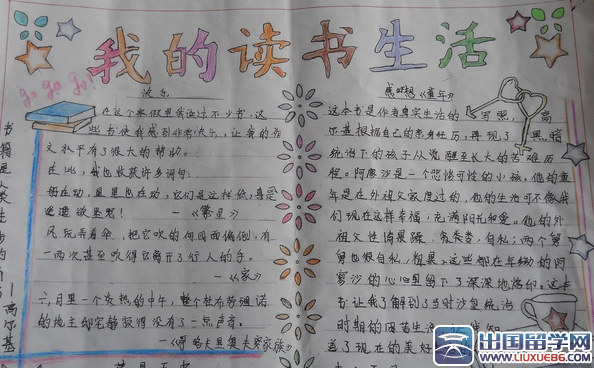 我的读书生活
go go go!
快乐
在这个寒假里我读过不少书，这
些书使我感到非常快乐，让我的作
文水平有了很大的帮助。
在此，我也收获许多词句：
鱼在动，星星也在动，它们是这样低，真是
摇摇欲坠呢！ —《繁星》
风玩弄着伞，把它吹的向四面偏倒，有
一两次甚至吹得它离开了行人的手。
—《家》
三、月里一个炎热的中午，整个杜布劳维诺
的地主邸宅静寂得没有了一点声音。
《哥略夫里奥夫家族》
感想《童年》
这本书是作者真实生活的写照，高
尔基根据自己的亲身经历，再现了黑暗
统治下的孩子从觉醒至长大的苦难历
程。阿廖沙是一个悲惨可怜的小孩，他的童
年是在外祖父家度过的，他的生活可不像我
们现在这样幸福，充满阳光和爱。他的外
祖父性情暴躁、贪婪、自私；两个舅
舅也很自私、粗暴、这些都在年幼的阿
廖沙的心里留下了深深地烙印。这本
书让我了解到了当时沙皇统治
时期的黑暗生活
了现在的美好
书籍是人类进步的
—高尔基
出国留学网
WWW.LIUXUE86.COM